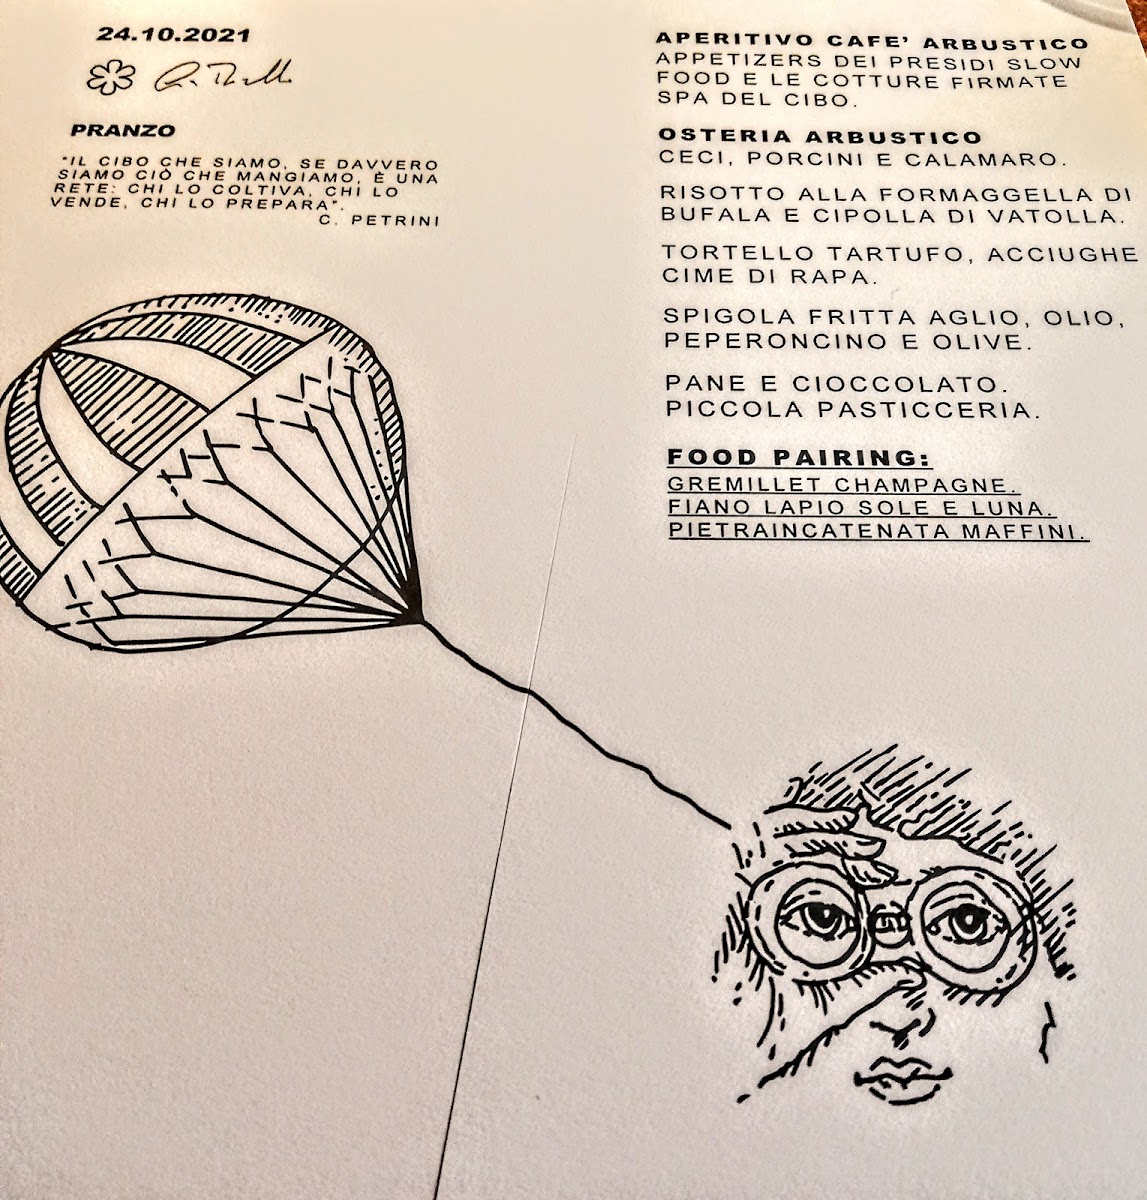 24.10.2021
PRANZO
"IL CIBO CHE SIAMO, SE DAVVERO
SIAMO CIÒ CHE MANGIAMO, È UNA
RETE: CHI LO COLTIVA, CHI LO
VENDE, CHI LO PREPARA".
C. PETRINI
APERITIVO CAFE' ARBUSTICO
APPETIZERS DEI PRESIDI SLOW
FOOD E LE COTTURE FIRMATE
SPA DEL CIBO.
OSTERIA ARBUSTICO
CECI, PORCINI E CALAMARO.
RISOTTO ALLA FORMAGGELLA DI
BUFALA E CIPOLLA DI VATOLLA.
TORTELLO TARTUFO, ACCIUGHE
CIME DI RAPA.
SPIGOLA FRITTA AGLIO, OLIO,
PEPERONCINO E OLIVE.
PANE E CIOCCOLATO.
PICCOLA PASTICCERIA.
FOOD PAIRING:
GREMILLET CHAMPAGNE.
FIANO LAPIO SOLE E LUNA.
PIETRAINCATENATA MAFFINI.